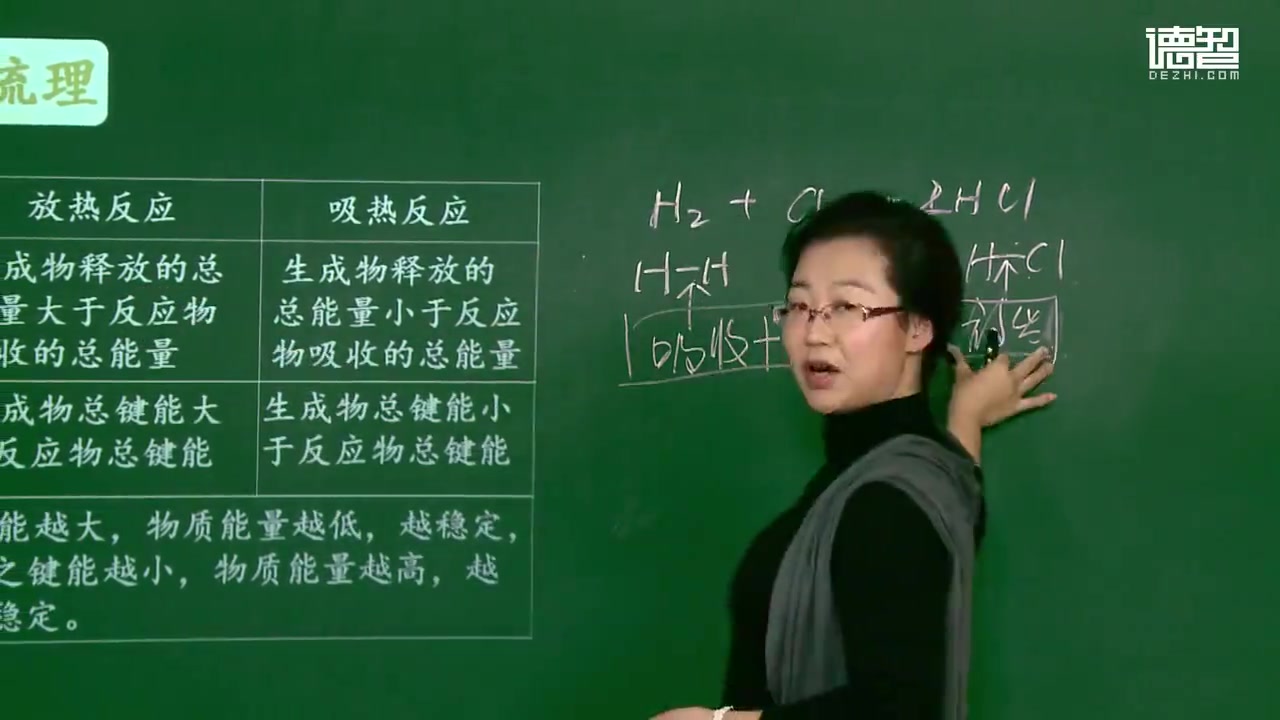 德智
DEZHI.COM
梳理
放热反应
吸热反应
成物释放的总
量大于反应物
收的总能量
生成物释放的
总能量小于反应
物吸收的总能量
成物总键能大
反应物总键能
生成物总键能小
于反应物总键能
能越大，物质能量越低，越稳定，
之键能越小，物质能量越高，越
稳定。
H₂ + Cl
2HCl
H-H
H-Cl
吸收+